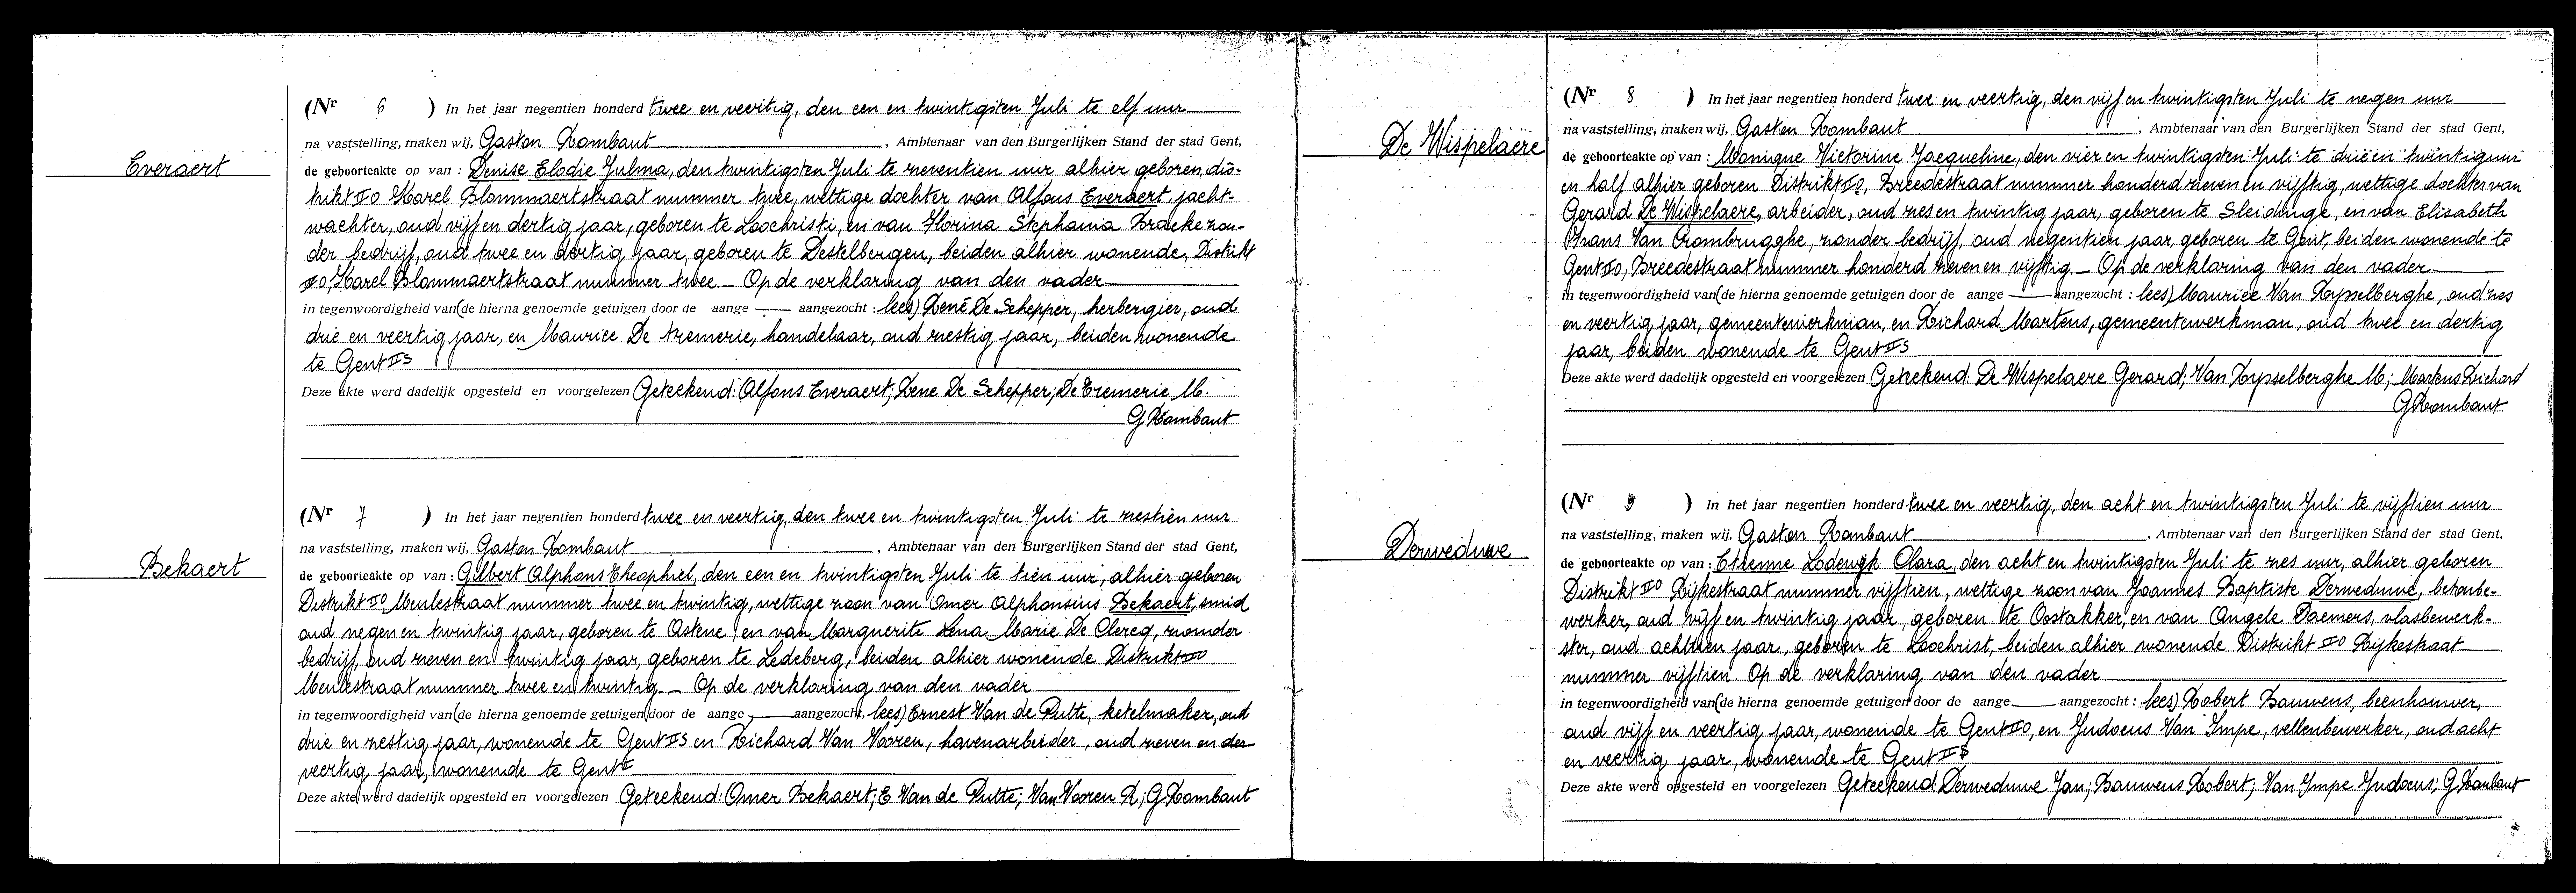 Everaert
(Nr 6 ) In het jaar negentien honderd twee en veertig, den een en twintigsten Juli te elf uur
na vaststelling, maken wij, Gaston Rombaut , Ambtenaar van den Burgerlijken Stand der stad Gent,
de geboorteakte op van : Denise Elodie Julma, den twintigsten Juli te zeventien uur alhier geboren, dis-
trikt II O Karel Blommaertstraat nummer twee, wettige dochter van Alfons Everaert, jacht-
wachter, oud vijf en dertig jaar, geboren te Loochristi, en van Florina Stephania Bracke zon-
der bedrijf, oud twee en dertig jaar, geboren te Destelbergen, beiden alhier wonende, Distrikt
II O, Karel Blommaertstraat nummer twee. — Op de verklaring van den vader
in tegenwoordigheid van (de hierna genoemde getuigen door de aange — aangezocht : lees) René De Schepper, herbergier, oud
drie en veertig jaar, en Maurice De Tremerie, handelaar, oud zestig jaar, beiden wonende
te Gent II S
Deze akte werd dadelijk opgesteld en voorgelezen Geteekend: Alfons Everaert; Rene De Schepper; De Tremerie M.
G Rombaut
Bekaert
(Nr 7 ) In het jaar negentien honderd twee en veertig, den twee en twintigsten Juli te zestien uur
na vaststelling, maken wij, Gaston Rombaut , Ambtenaar van den Burgerlijken Stand der stad Gent,
de geboorteakte op van : Gilbert Alphons Theophiel, den een en twintigsten Juli te tien uur, alhier geboren
Distrikt II O Meulestraat nummer twee en twintig, wettige zoon van Omer Alphonsius Bekaert, smid
oud negen en twintig jaar, geboren te Astene, en van Marguerite Lena Marie De Clercq, zonder
bedrijf, oud zeven en twintig jaar, geboren te Ledeberg, beiden alhier wonende Distrikt II O
Meulestraat nummer twee en twintig. — Op de verklaring van den vader
in tegenwoordigheid van (de hierna genoemde getuigen door de aange — aangezocht, lees) Ernest Van de Putte, ketelmaker, oud
drie en zestig jaar, wonende te Gent II S en Richard Van Vooren, havenarbeider, oud zeven en der
veertig jaar, wonende te Gent I
Deze akte werd dadelijk opgesteld en voorgelezen Geteekend: Omer Bekaert; E Van de Putte; Van Vooren R; G Rombaut
De Wispelaere
(Nr 8 ) In het jaar negentien honderd twee en veertig, den vijf en twintigsten Juli te negen uur
na vaststelling, maken wij, Gaston Rombaut , Ambtenaar van den Burgerlijken Stand der stad Gent,
de geboorteakte op van : Monique Victorine Jacqueline, den vier en twintigsten Juli te drie en twintig uur
en half alhier geboren Distrikt II O, Breedestraat nummer honderd zeven en vijftig, wettige dochter van
Gerard De Wispelaere, arbeider, oud zes en twintig jaar, geboren te Sleidinge, en van Elisabeth
Frans Van Crombrugghe, zonder bedrijf, oud negentien jaar, geboren te Gent, beiden wonende te
Gent II O, Breedestraat nummer honderd zeven en vijftig. — Op de verklaring van den vader
in tegenwoordigheid van (de hierna genoemde getuigen door de aange — aangezocht : lees) Maurice Van Rysselberghe, oud zes
en veertig jaar, gemeentewerkman, en Richard Martens, gemeentewerkman, oud twee en dertig
jaar, beiden wonende te Gent II S
Deze akte werd dadelijk opgesteld en voorgelezen Geteekend: De Wispelaere Gerard; Van Rysselberghe M; Martens Richard
G Rombaut
Derweduwe
(Nr 9 ) In het jaar negentien honderd twee en veertig, den acht en twintigsten Juli te vijftien uur
na vaststelling, maken wij, Gaston Rombaut , Ambtenaar van den Burgerlijken Stand der stad Gent,
de geboorteakte op van : Etienne Lodewijk Clara, den acht en twintigsten Juli te zes uur, alhier geboren
Distrikt II O Rijkestraat nummer vijftien, wettige zoon van Joannes Baptiste Derweduwe, betonbe-
werker, oud vijf en twintig jaar, geboren te Oostakker, en van Angele Daemers, vlasbewerk-
ster, oud achttien jaar, geboren te Loochrist, beiden alhier wonende Distrikt II O Rijkestraat
nummer vijftien. Op de verklaring van den vader
in tegenwoordigheid van (de hierna genoemde getuigen door de aange — aangezocht : lees) Robert Bauwens, beenhouwer,
oud vijf en veertig jaar, wonende te Gent II O, en Judocus Van Impe, vellenbewerker, oud acht
en veertig jaar, wonende te Gent II S
Deze akte werd opgesteld en voorgelezen Geteekend: Derweduwe Jan; Bauwens Robert; Van Impe Judocus; G. Rombaut